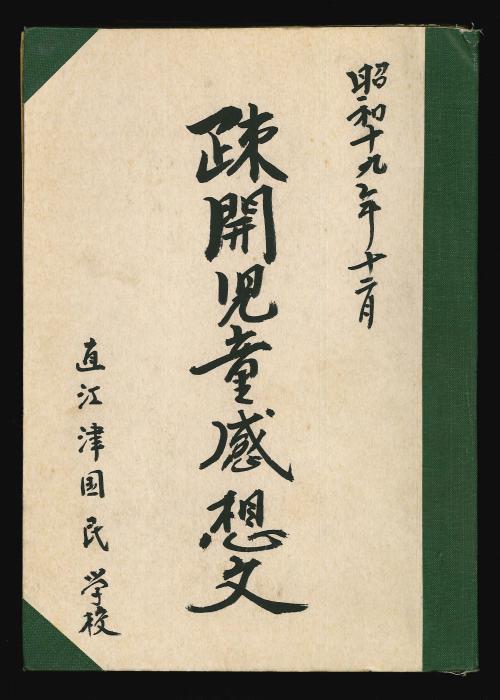 昭和十九年十二月
疎開児童感想文
直江津国民学校